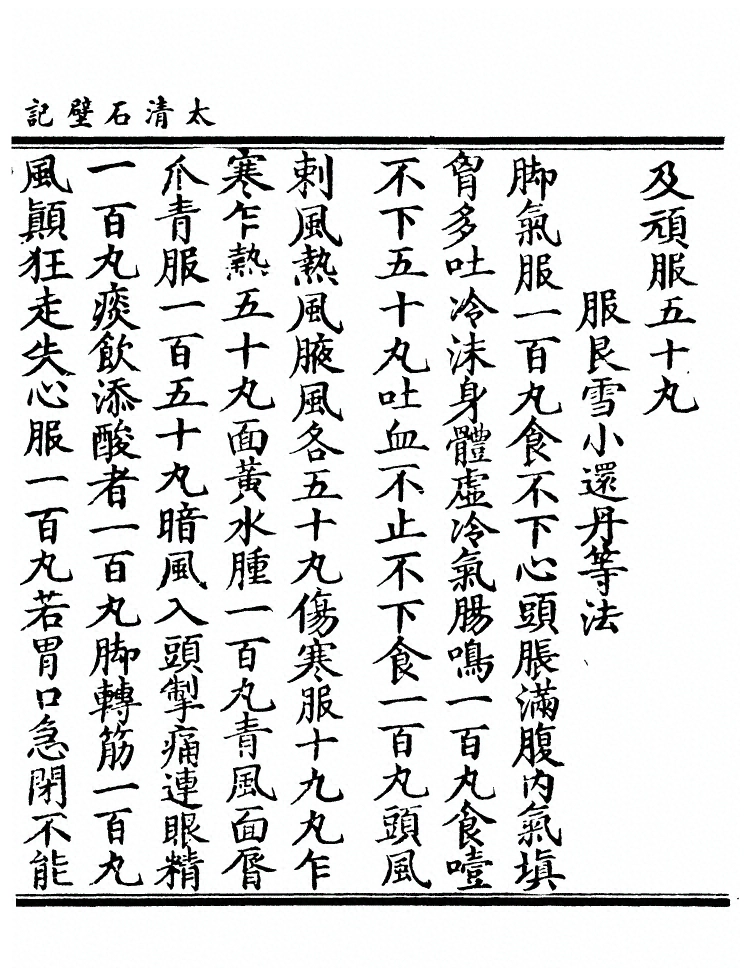 太清石壁記
及頑服五十丸
服艮雪小還丹等法
脚氣服一百丸食不下心頭脹滿腹内氣塡
胷多吐冷沫身體虛冷氣腸鳴一百丸食噎
不下五十丸吐血不止不下食一百丸頭風
刺風熱風腋風各五十丸傷寒服十九丸乍
寒乍熱五十丸面黃水腫一百丸青風面脣
爪青服一百五十丸暗風入頭掣痛連眼精
一百丸痰飲添酸者一百丸脚轉筋一百丸
風顚狂走失心服一百丸若胃口急閉不能